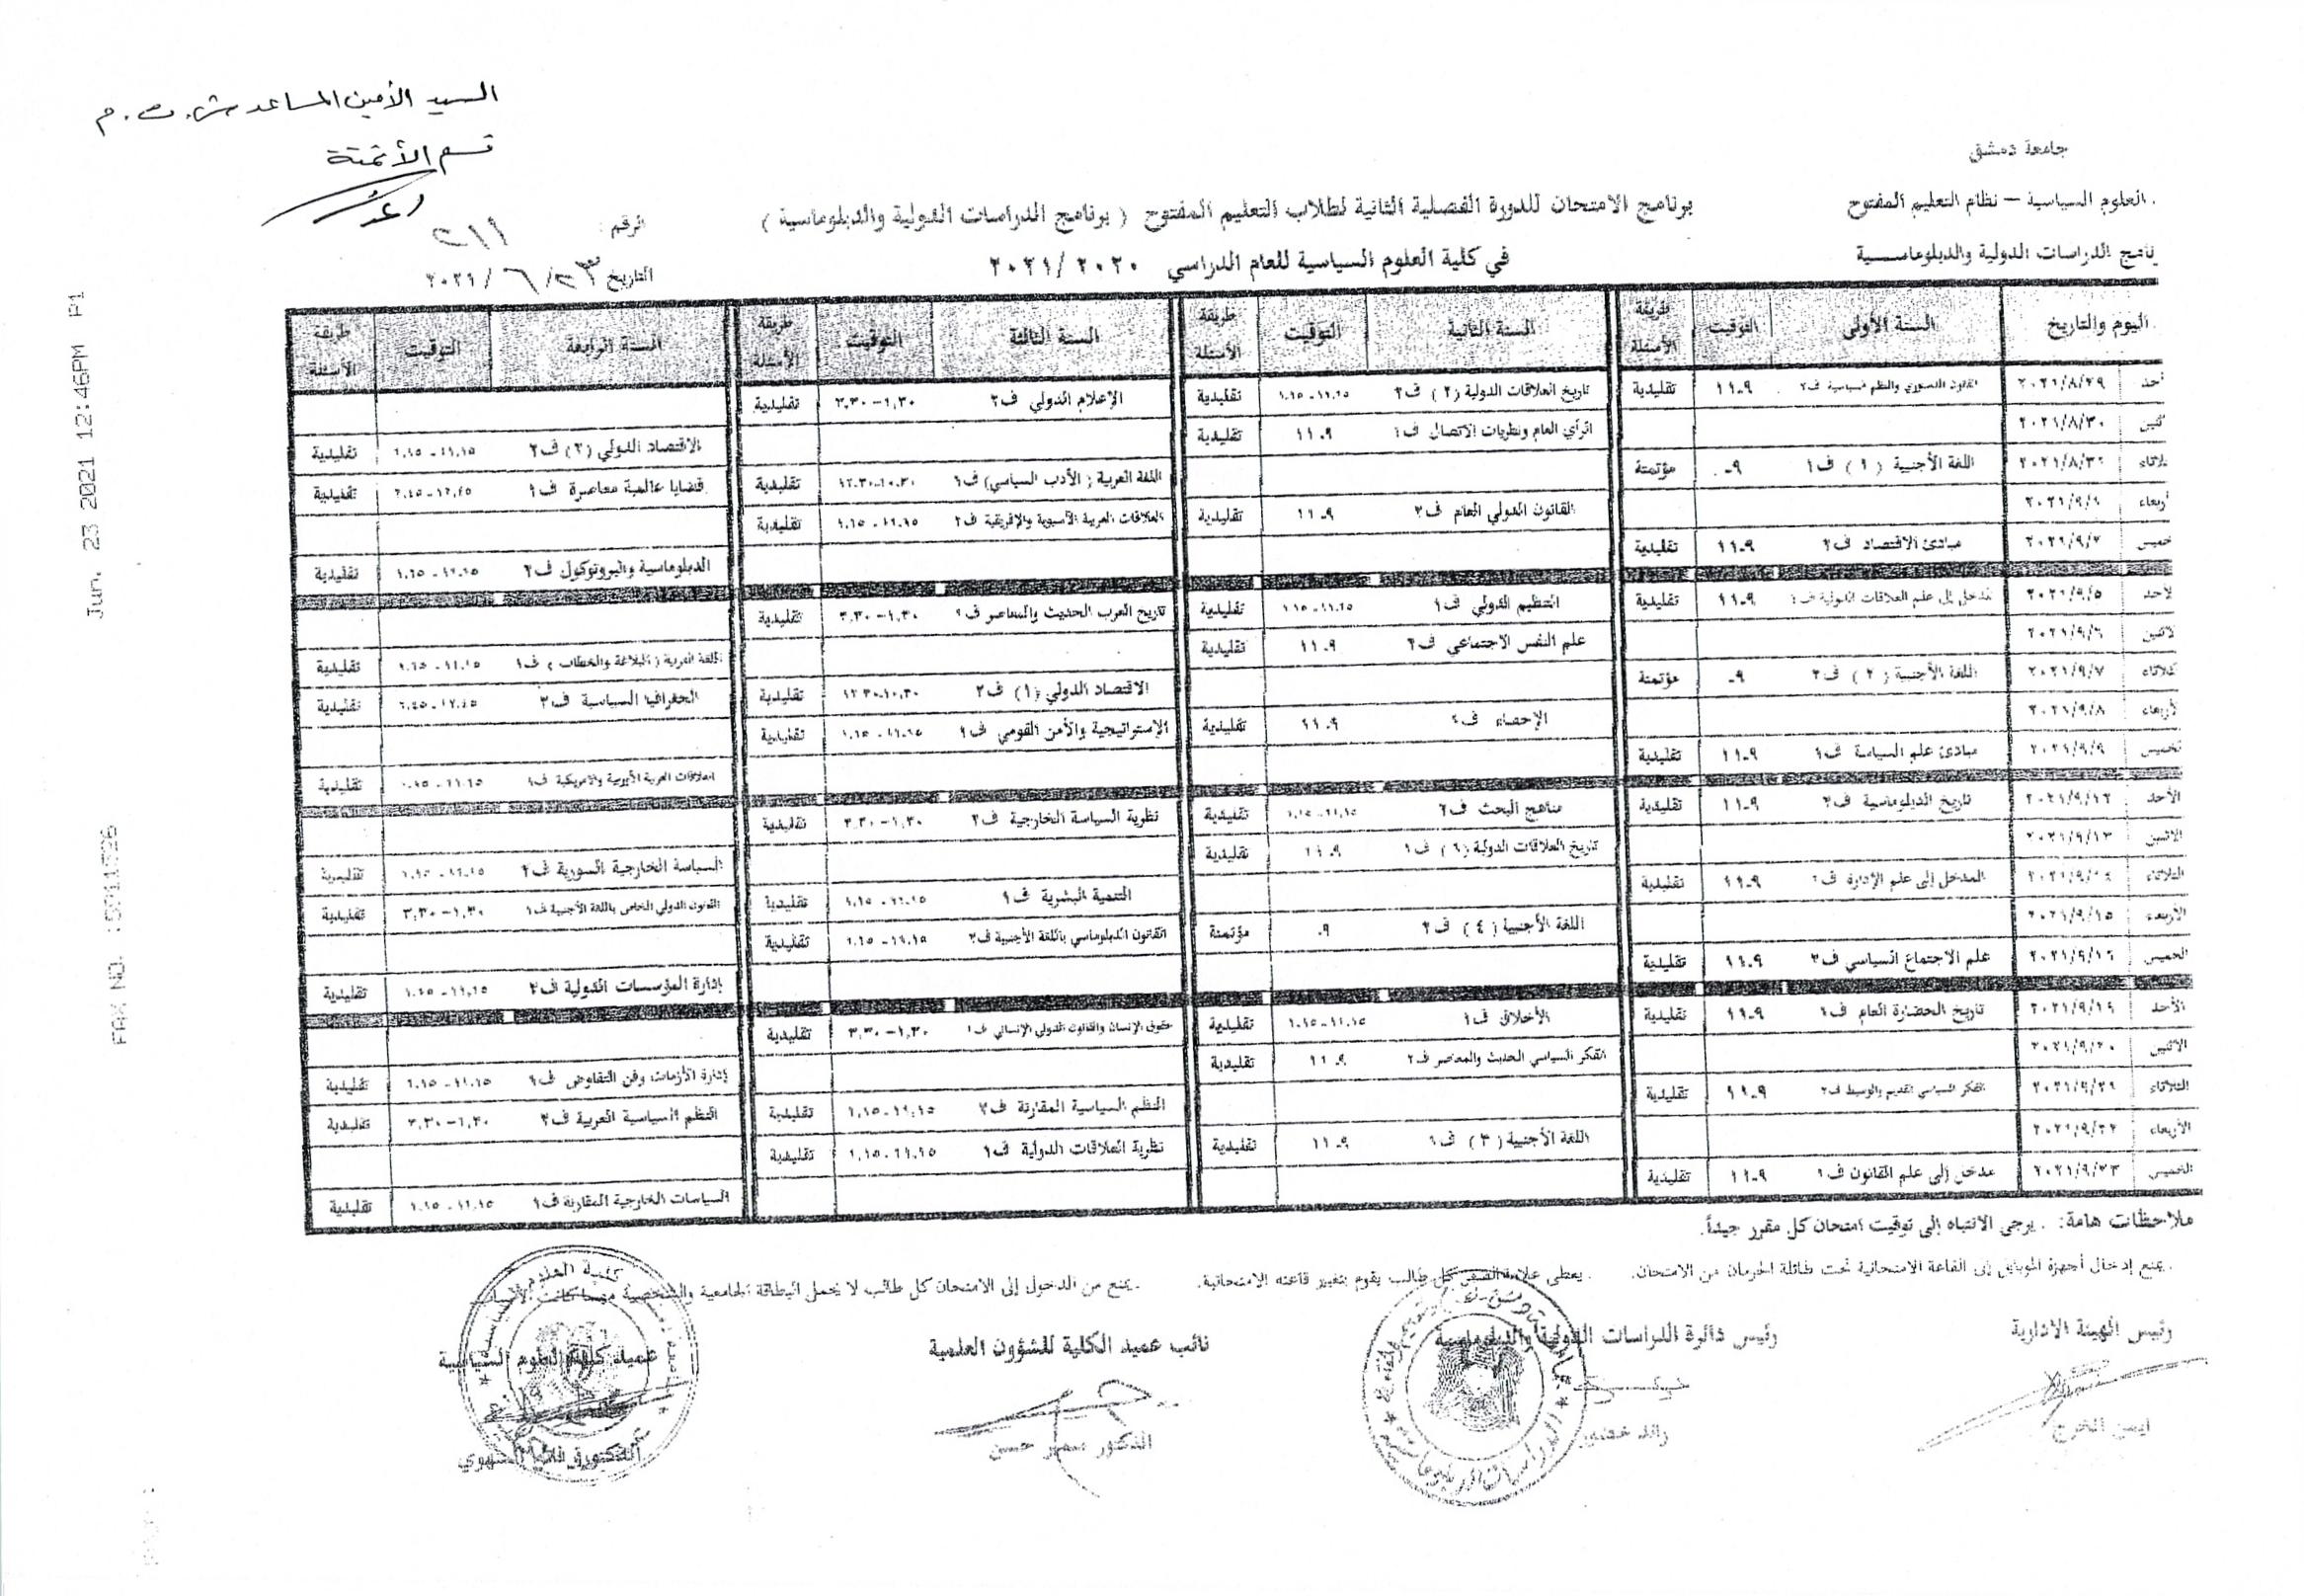 السيد الأمين المساعد ش. ت. م
قسم الأتمتة
جامعة دمشق
العلوم السياسية – نظام التعليم المفتوح
برنامج الامتحان للدورة الفصلية الثانية لطلاب التعليم المفتوح ( برنامج الدراسات الدولية والدبلوماسية )
الرقم :
نامج الدراسات الدولية والدبلوماسية
في كلية العلوم السياسية للعام الدراسي ٢٠٢٠ /٢٠٢١
التاريخ ٢٣/ ٦ /٢٠٢١
اليوم والتاريخ السنة الأولى التوقيت طريقة الأسئلة السنة الثانية التوقيت طريقة الأسئلة السنة الثالثة التوقيت طريقة الأسئلة السنة الرابعة التوقيت طريقة الأسئلة
٢٠٢١/٨/٢٩ ١١-٩ تقليدية تاريخ العلاقات الدولية (٢) ف٢ تقليدية الإعلام الدولي ف٢ ١,٣٠–٣,٣٠ تقليدية
٢٠٢١/٨/٣٠ الرأي العام ونظريات الاتصال ف١ ١١-٩ تقليدية الاقتصاد الدولي (٢) ف٢ تقليدية
اللغة الأجنبية (١) ف١ ٩- مؤتمتة اللغة العربية ( الأدب السياسي) ف١ ١٠,٣٠-١٢,٣٠ تقليدية قضايا عالمية معاصرة ف١ تقليدية
القانون الدولي العام ف٢ ١١-٩ تقليدية العلاقات العربية الآسيوية والإفريقية ف٢ تقليدية
مبادئ الاقتصاد ف٢ ١١-٩ تقليدية الدبلوماسية والبروتوكول ف٢ تقليدية
٢٠٢١/٩/٥ مدخل إلى علم العلاقات الدولية ف١ ١١-٩ تقليدية التنظيم الدولي ف١ تقليدية تاريخ العرب الحديث والمعاصر ف١ ١,٣٠–٣,٣٠ تقليدية
٢٠٢١/٩/٦ علم النفس الاجتماعي ف٢ ١١-٩ تقليدية اللغة العربية ( البلاغة والخطاب ) ف١ تقليدية
٢٠٢١/٩/٧ اللغة الأجنبية (٢) ف٢ ٩- مؤتمتة الاقتصاد الدولي (١) ف٢ ١٠,٣٠-١٢,٣٠ تقليدية الجغرافيا السياسية ف٢ تقليدية
٢٠٢١/٩/٨ الإحصاء ١١-٩ تقليدية الإستراتيجية والأمن القومي ف١ تقليدية
٢٠٢١/٩/٩ مبادئ علم السياسة ف١ ١١-٩ تقليدية العلاقات العربية الأوروبية والأمريكية ف١ تقليدية
الأحد ٢٠٢١/٩/١٢ تاريخ الدبلوماسية ف٢ ١١-٩ تقليدية مناهج البحث ف٢ تقليدية نظرية السياسة الخارجية ف٢ ١,٣٠–٣,٣٠ تقليدية
الاثنين ٢٠٢١/٩/١٣ تاريخ العلاقات الدولية (١) ف١ ١١-٩ تقليدية السياسة الخارجية السورية ف٢ تقليدية
الثلاثاء ٢٠٢١/٩/١٤ المدخل إلى علم الإدارة ف١ ١١-٩ تقليدية التنمية البشرية ف١ ١١,١٥–١,١٥ تقليدية القانون الدولي الخاص باللغة الأجنبية ف١ ١,٣٠–٣,٣٠ تقليدية
الأربعاء ٢٠٢١/٩/١٥ اللغة الأجنبية (٤) ف٢ ٩- مؤتمتة القانون الدبلوماسي باللغة الأجنبية ف٢ ١١,١٥-١,١٥ تقليدية
الخميس ٢٠٢١/٩/١٦ علم الاجتماع السياسي ف٢ ١١-٩ تقليدية إدارة المؤسسات الدولية ف٢ ١١,١٥-١,١٥ تقليدية
الأحد ٢٠٢١/٩/١٩ تاريخ الحضارة العام ف١ ١١-٩ تقليدية الأخلاق ف١ ١١,١٥-١,١٥ تقليدية حقوق الإنسان والقانون الدولي الإنساني ف١ ١,٣٠–٣,٣٠ تقليدية
الاثنين ٢٠٢١/٩/٢٠ الفكر السياسي الحديث والمعاصر ف٢ ١١-٩ تقليدية إدارة الأزمات وفن التفاوض ف١ ١١,١٥-١,١٥ تقليدية
الثلاثاء ٢٠٢١/٩/٢١ الفكر السياسي القديم والوسيط ف٢ ١١-٩ تقليدية النظم السياسية المقارنة ف٢ ١١,١٥-١,١٥ تقليدية النظم السياسية العربية ف٢ ١,٣٠–٣,٣٠ تقليدية
الأربعاء ٢٠٢١/٩/٢٢ اللغة الأجنبية (٣) ف١ ١١-٩ تقليدية نظرية العلاقات الدولية ف١ ١١,١٥-١,١٥ تقليدية
الخميس ٢٠٢١/٩/٢٣ مدخل إلى علم القانون ف١ ١١-٩ تقليدية السياسات الخارجية المقارنة ف١ ١١,١٥-١,١٥ تقليدية
ملاحظات هامة: . يرجى الانتباه إلى توقيت امتحان كل مقرر جيداً.
. يمنع إدخال أجهزة الموبايل إلى القاعة الامتحانية تحت طائلة الحرمان من الامتحان. . يعطى علامة الصفر كل طالب يقوم بتغيير قاعته الامتحانية. . يمنع من الدخول إلى الامتحان كل طالب لا يحمل البطاقة الجامعية والشخصية مهما كانت الأسباب
رئيس الهيئة الادارية رئيس دائرة الدراسات الدولية والدبلوماسية نائب عميد الكلية للشؤون العلمية عميد كلية العلوم السياسية
ايمن الخرج رائد الدكتور سمير حسن
Jun. 23 2021 12:46PM P1
FAX NO. :